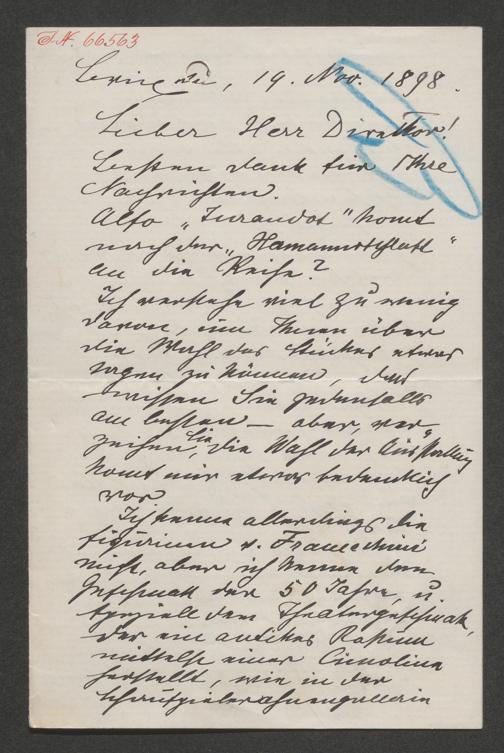 I.N. 66563
19. Nov. 1898.
Lieber Herr Direktor!
Besten Dank für Ihre
Nachrichten.
Also „Turandot" komt
nach der „Hermannsschlacht"
an die Reihe?
Ich verstehe viel zu wenig
davon, um Ihnen über
die Wahl des Stückes etwas
sagen zu können, das
wissen Sie jedenfalls
am besten – aber, ver-
zeihen Sie, die Wahl der Ausstattung
komt mir etwas bedenklich
vor.
Ich kenne allerdings die
Figurinen v. Franceschini
nicht, aber ich kenne den
Geschmak der 50 Jahre, u.
speziell den Theatergeschmak,
der ein antikes Kostüm
mittelst einer Crinoline
herstellt, wie in der
Schauspielerahnengallerie